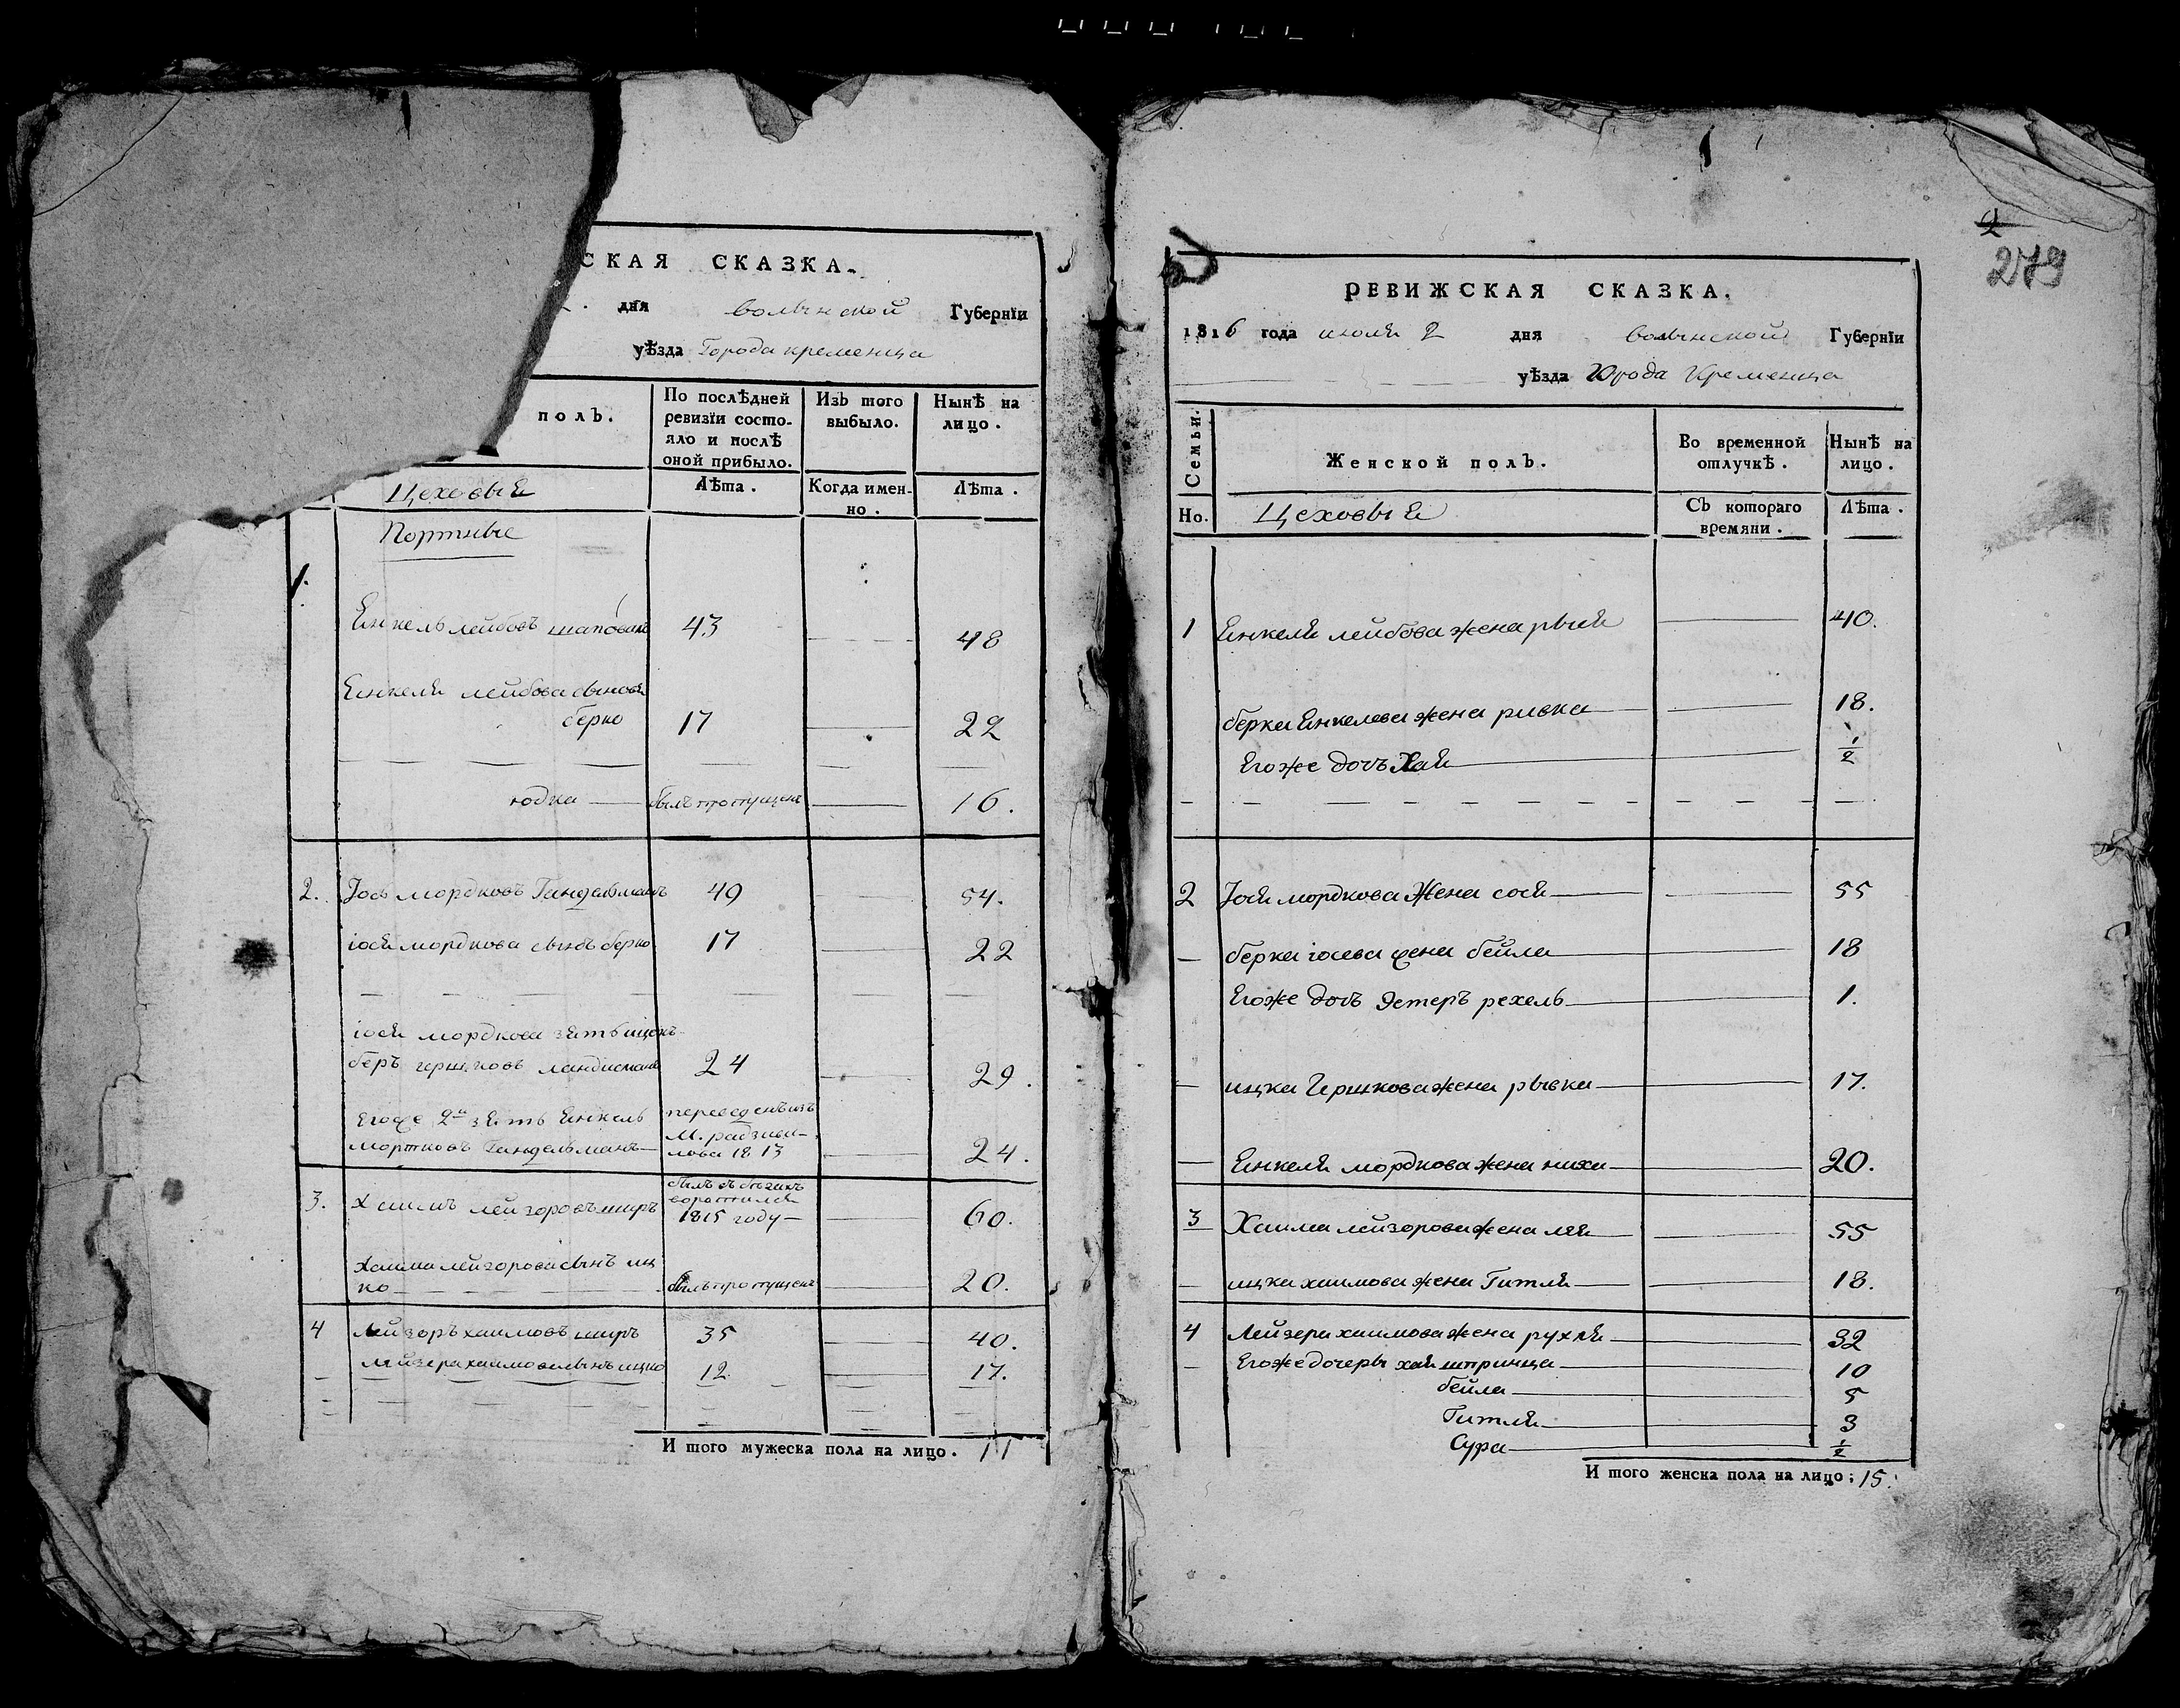 СКАЯ СКАЗКА.
дня волынской Губернїи
уѣзда Города кременца
полъ.
По послѣдней ревизїи состо-
яло и послѣ
оной прибыло.
Изъ того выбыло.
Нынѣ на лицо.
Цеховыя
Лѣта.
Когда имен-
но.
Лѣта.
Портные
1.
Енкель лейбовъ шаповал 43 48
Енкеля лейбова сыновя
берко 17 22
юдка былъ пропущенъ 16.
2. Іось мордковъ Гиндельманъ 49 54.
іося мордкова сынъ берко 17 22
іося мордкова зять ицокъ
беръ гершковъ ландисманъ 24 29.
Егоже 2й зять Енкель
мортковъ Гиндельманъ
переведенъ изъ
М. радзиви-
лова 1813
24.
3. Хаимъ лейзоровъ ширъ
былъ въ бѣгахъ
воротился
1815 году
60.
Хаима лейзорова сынъ иц
ко былъ пропущенъ 20.
4 Лейзоръ хаимовъ ширъ 35 40.
лейзера хаимова сынъ ицко 12 17.
И того мужеска пола на лицо. 11
2
279
РЕВИЖСКАЯ СКАЗКА.
1816 года июля 2 дня волынской Губернїи
уѣзда Города Кременца
Семьи.
Женской полъ.
Во временной отлучкѣ.
Нынѣ на лицо.
Но.
Цеховыя
Съ котораго
времяни.
Лѣта.
1 Енкеля лейбова жена рыся 40.
берка Енкелева жена ривка 18.
Егоже дочъ Хая 1/2
2 Іося мордкова Жена сося 55
берка іосева жена бейла 18
Егоже дочъ Эстеръ рехель 1.
ицка Гершкова жена рывка 17.
Енкеля мордкова жена ниха 20.
3 Хаима лейзорова жена лея 55
ицка хаимова жена Гитля 18.
4 Лейзера хаимова жена рухля 32
Егоже дочеры хая шпринца 10
бейла 5
Гитля 3
Сура 1/2
И того женска пола на лицо; 15.